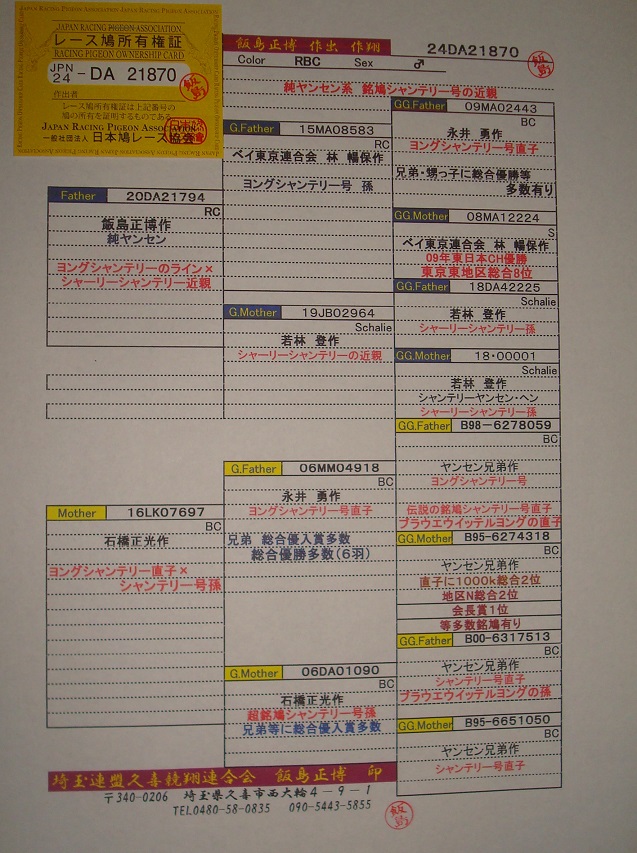 JAPAN RACING PIGEON ASSOCIATION
レース鳩所有権証
RACING PIGEON OWNERSHIP CARD
JPN
24 - DA 21870
作出者
レース鳩所有権証は上記番号の
鳩の所有を証明するものである。
JAPAN RACING PIGEON ASSOCIATION
一般社団法人 日本鳩レース協会
飯島正博 作出 作翔
24DA21870
Color RBC Sex ♂
純ヤンセン系 銘鳩シャンテリー号の近親
Father 20DA21794
RC
飯島正博作
純ヤンセン
ヨングシャンテリーのライン×
シャーリーシャンテリー近親
Mother 16LK07697
BC
石橋正光作
ヨングシャンテリー直子×
シャンテリー号孫
G.Father 15MA08583
RC
ベイ東京連合会 林 暢保作
ヨングシャンテリー号 孫
G.Mother 19JB02964
Schalie
若林 登作
シャーリーシャンテリーの近親
G.Father 06MM04918
BC
永井 勇作
ヨングシャンテリー号直子
兄弟 総合優入賞多数
総合優勝多数(6羽)
G.Mother 06DA01090
BC
石橋正光作
超銘鳩シャンテリー号孫
兄弟等に総合優入賞多数
GG.Father 09MA02443
BC
永井 勇作
ヨングシャンテリー号直子
兄弟・甥っ子に総合優勝等
多数有り
GG.Mother 08MA12224
S
ベイ東京連合会 林 暢保作
09年東日本CH優勝
東京東地区総合8位
GG.Father 18DA42225
Schalie
若林 登作
シャーリーシャンテリー孫
GG.Mother 18・00001
Schalie
若林 登作
シャンテリーヤンセン・ヘン
シャーリーシャンテリー孫
GG.Father B98-6278059
BC
ヤンセン兄弟作
ヨングシャンテリー号
伝説の銘鳩シャンテリー号直子
ブラウエウイッテルヨングの直子
GG.Mother B95-6274318
BC
ヤンセン兄弟作
直子に1000k総合2位
地区N総合2位
会長賞1位
等多数銘鳩有り
GG.Father B00-6317513
BC
ヤンセン兄弟作
シャンテリー号直子
ブラウエウイッテルヨングの孫
GG.Mother B95-6651050
BC
ヤンセン兄弟作
シャンテリー号直子
埼玉連盟久喜競翔連合会 飯島正博 印
〒340-0206 埼玉県久喜市西大輪4-9-1
TEL0480-58-0835 090-5443-5855